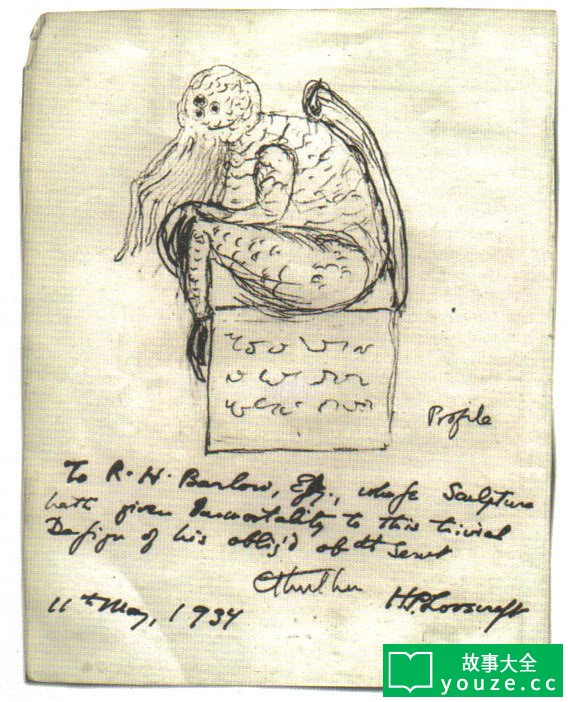 Profile
To R. H. Barlow, Esq., whose Sculpture
hath given Immortality to this trivial
Design of his oblig'd obdt Servt
Cthulhu
H.P. Lovecraft
11th May, 1934
故事大全
youze.cc